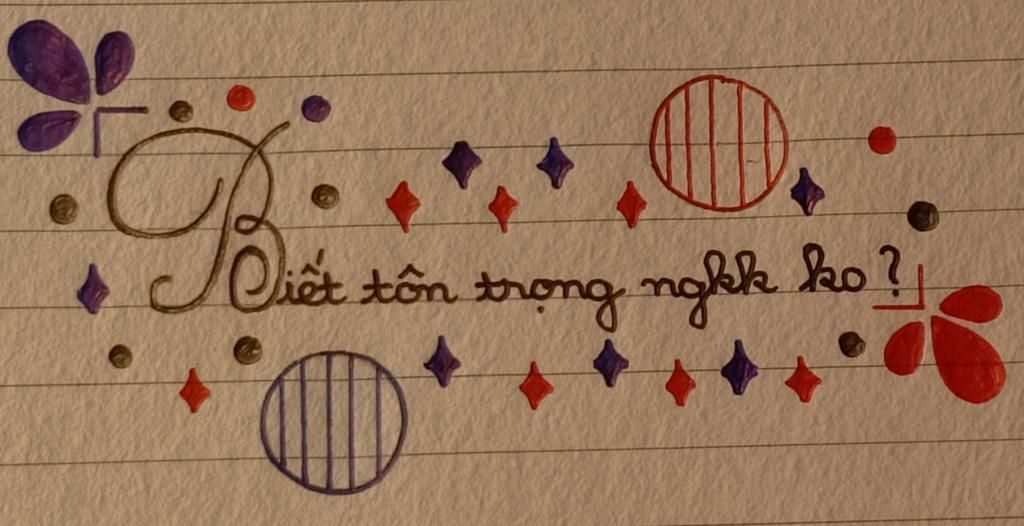 Biết tôn trọng ngkk ko?